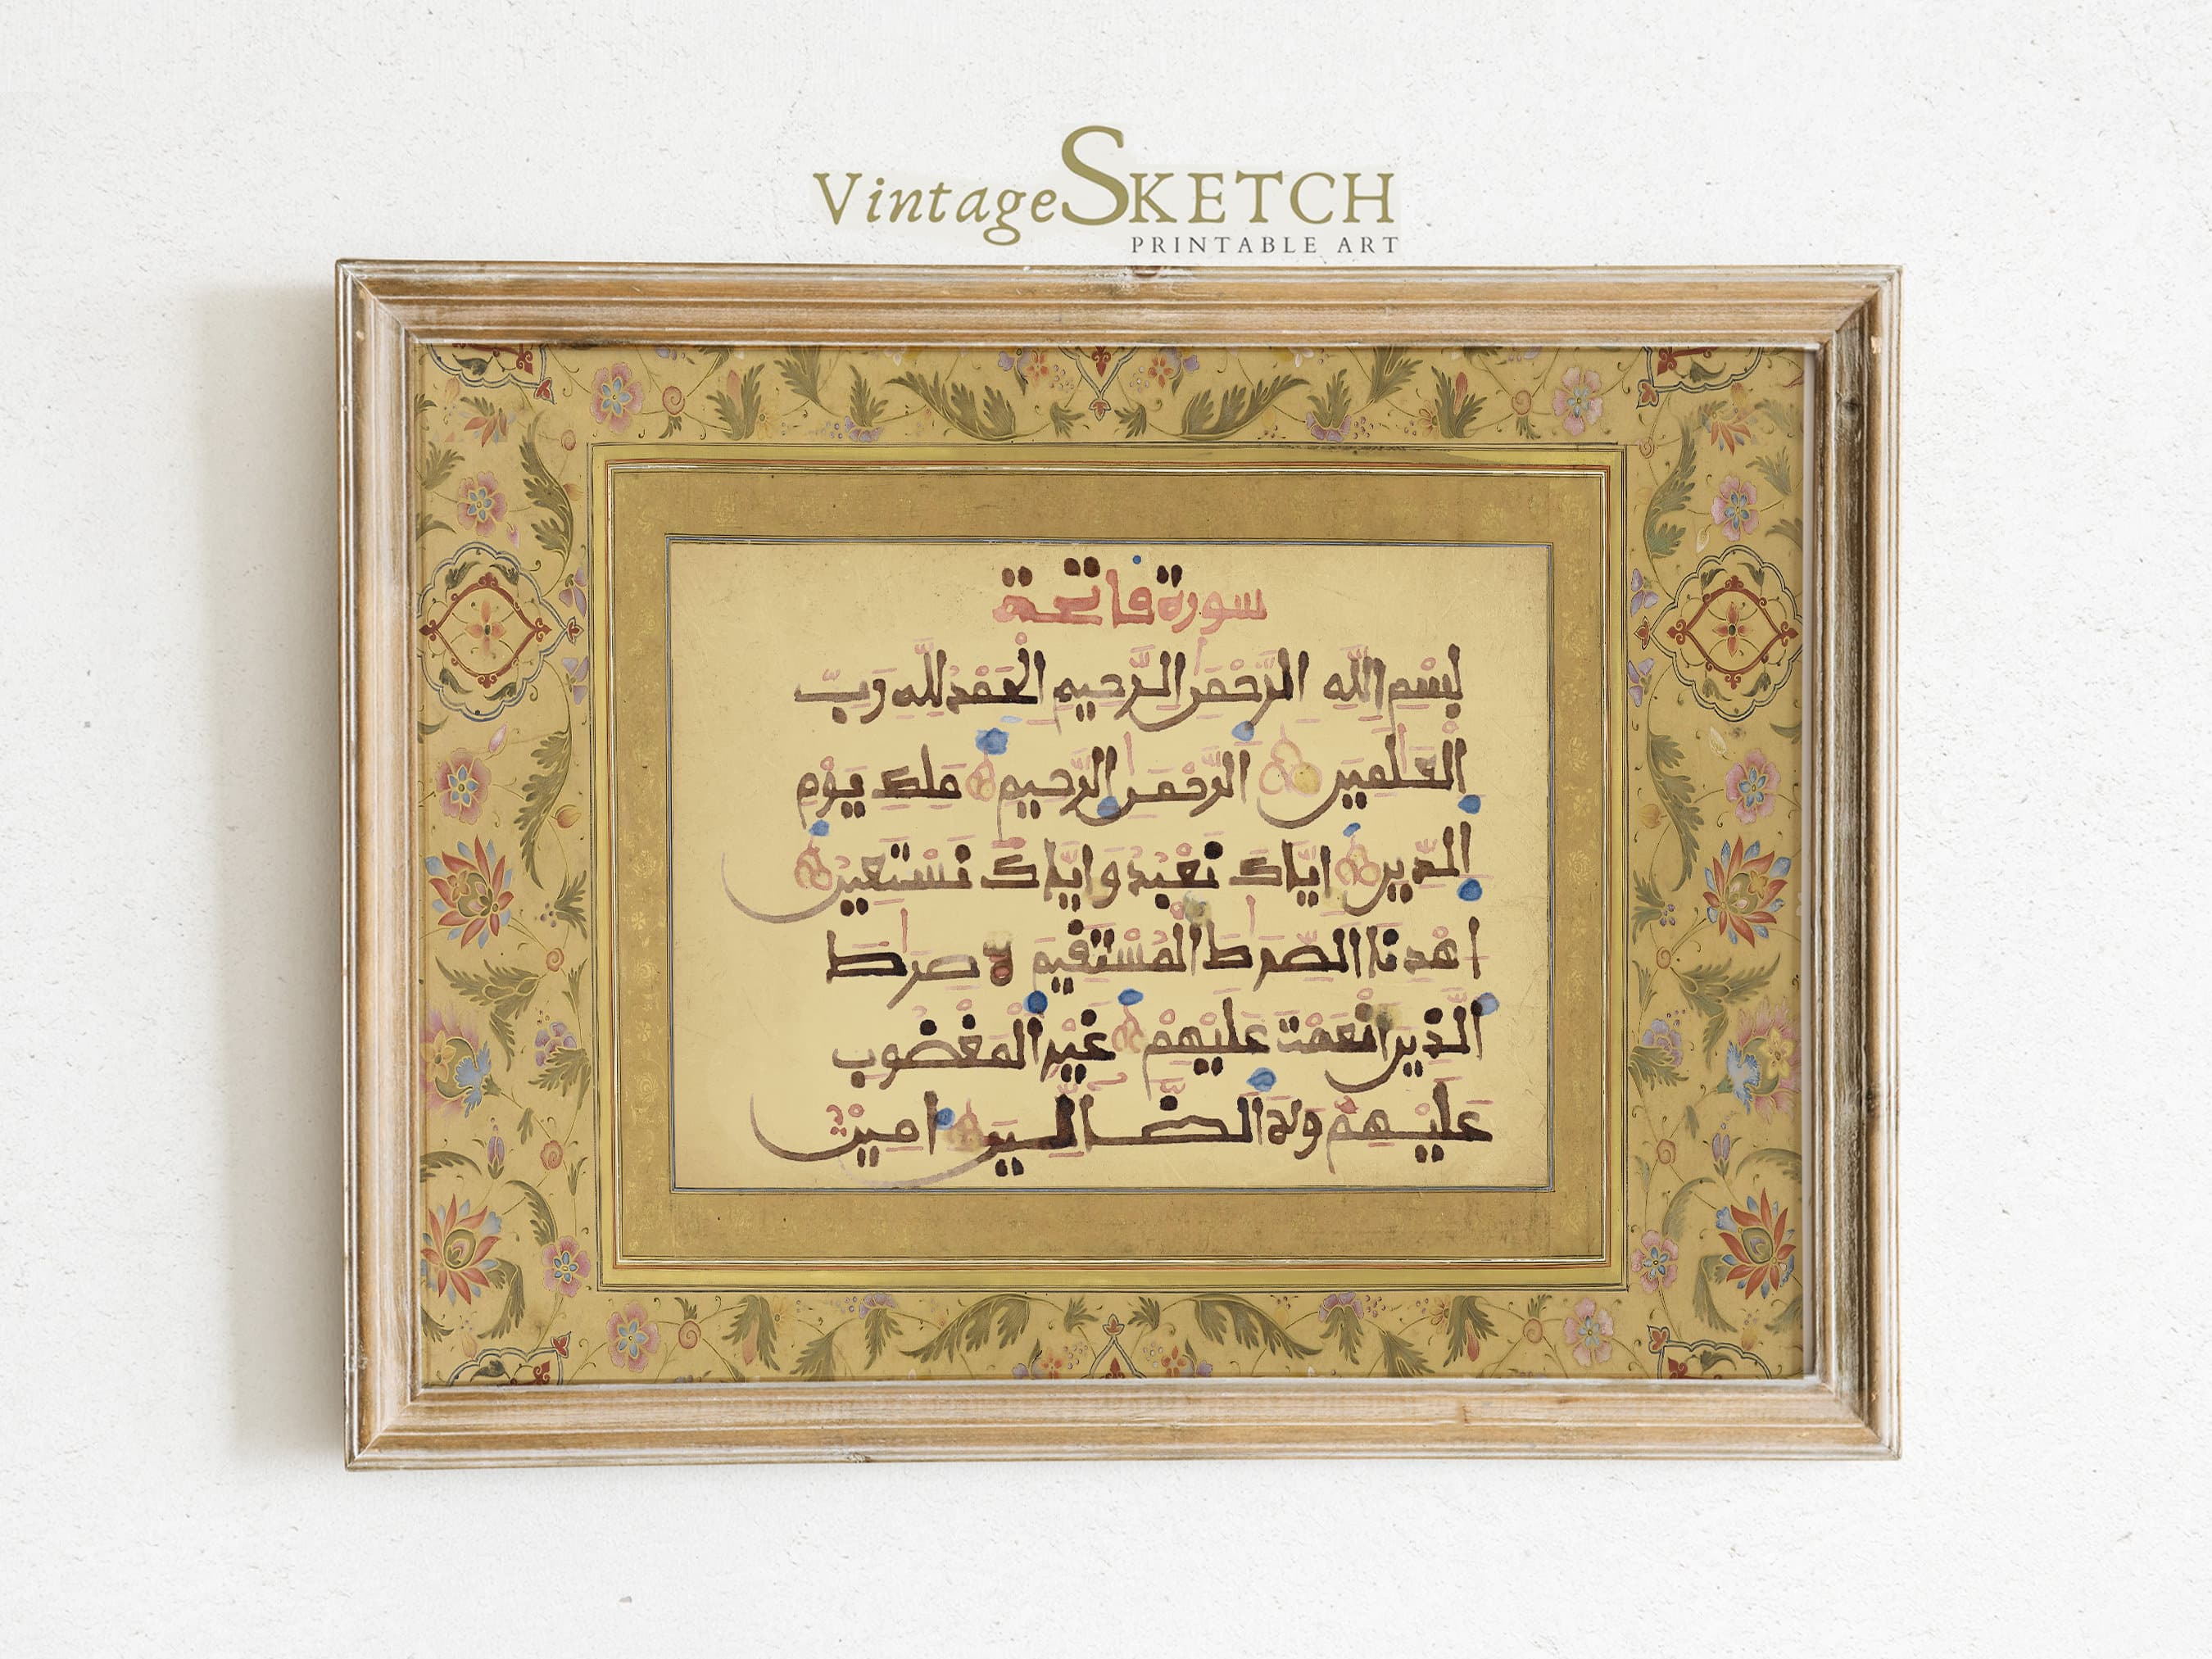 VintageSKETCH
PRINTABLE ART
سورة فاتحة
بِسْمِ اللَّهِ الرَّحْمَنِ الرَّحِيمِ الْحَمْدُ لِلَّهِ رَبِّ
الْعَلَمِينَ الرَّحْمَنِ الرَّحِيمِ مَلِكِ يَوْمِ
الدِّينِ اِيَّاكَ نَعْبُدُ وَاِيَّاكَ نَسْتَعِينُ
اهْدِنَا الصِّرَطَ الْمُسْتَقِيمَ صِرَطَ
الَّذِينَ اَنْعَمْتَ عَلَيْهِمْ غَيْرِ الْمَغْضُوبِ
عَلَيْهِمْ وَلَا الضَّالِّينَ امِينْ